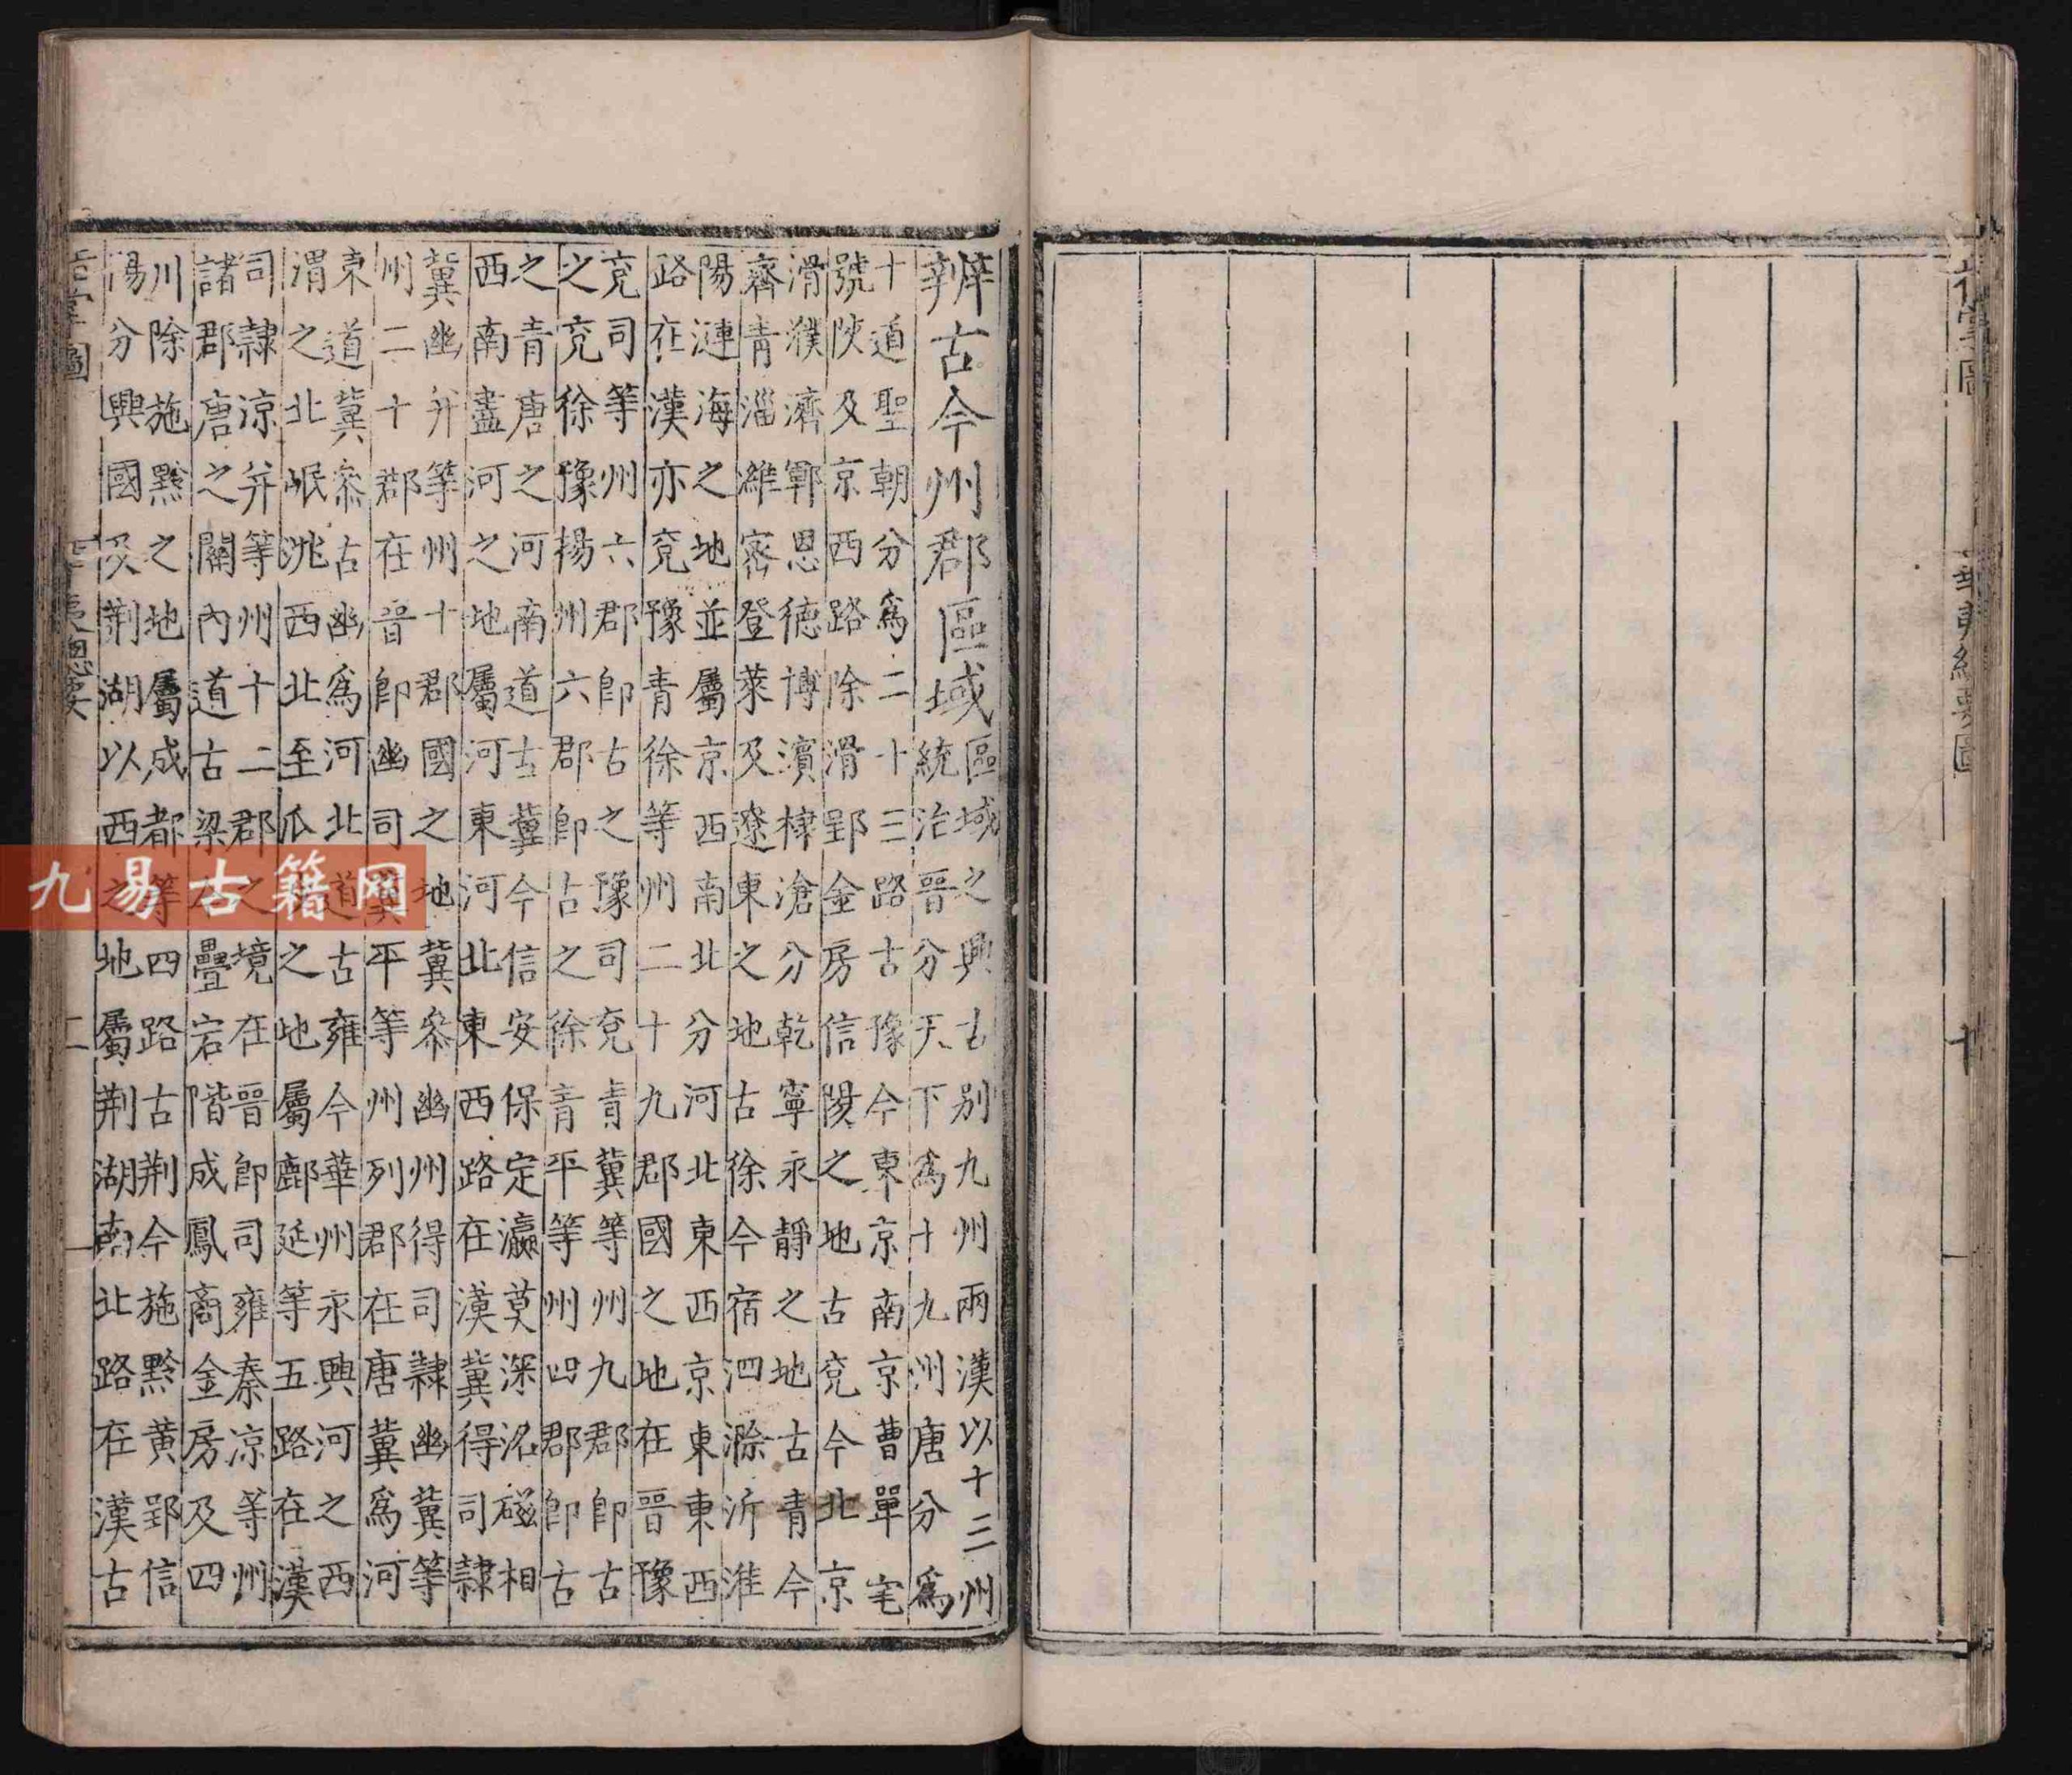 華夷總要圖
十
辨古今州郡區域
區域之興古別九州兩漢以十三州
統治晉分天下爲十九州唐分爲
十道聖朝分爲二十三路古豫今東京南京曹單亳
號陝及京西路除滑郢金房信陽之地古兗今北京
滑濮濟鄆恩德博濱棣滄分乾寧永靜之地古青今
齊青淄濰密登萊及遼東之地古徐今宿泗滁沂淮
陽漣海之地並屬京西南北分河北東西京東東西
路在漢亦兗豫青徐等州二十九郡國之地在晉豫
兗司等州六郡即古之豫司兗青冀等州九郡即古
之兗徐豫揚州六郡即古之徐青平等州四郡即古
之青唐之河南道古冀今信安保定瀛莫深洺磁相
西南盡河之地屬河東河北東西路在漢冀得司隸
冀幽并等州十郡國之地冀叅幽州得司隸幽冀等
州二十郡在晉即幽司冀平等州列郡在唐冀爲河
東道冀叅古幽爲河北道古雍今華州永興河之西
渭之北岷洮西北至瓜之地屬鄜延等五路在漢
司隸凉并等州十二郡之境在晉即司雍秦凉等州
諸郡唐之關內道古梁疊宕階成鳳商金房及四
川除施黔之地屬成都等四路古荆今施黔黃郢信
湯分興國及荆湖以西之地屬荆湖南北路在漢古
掌圖
華夷總要
二
九易古籍网